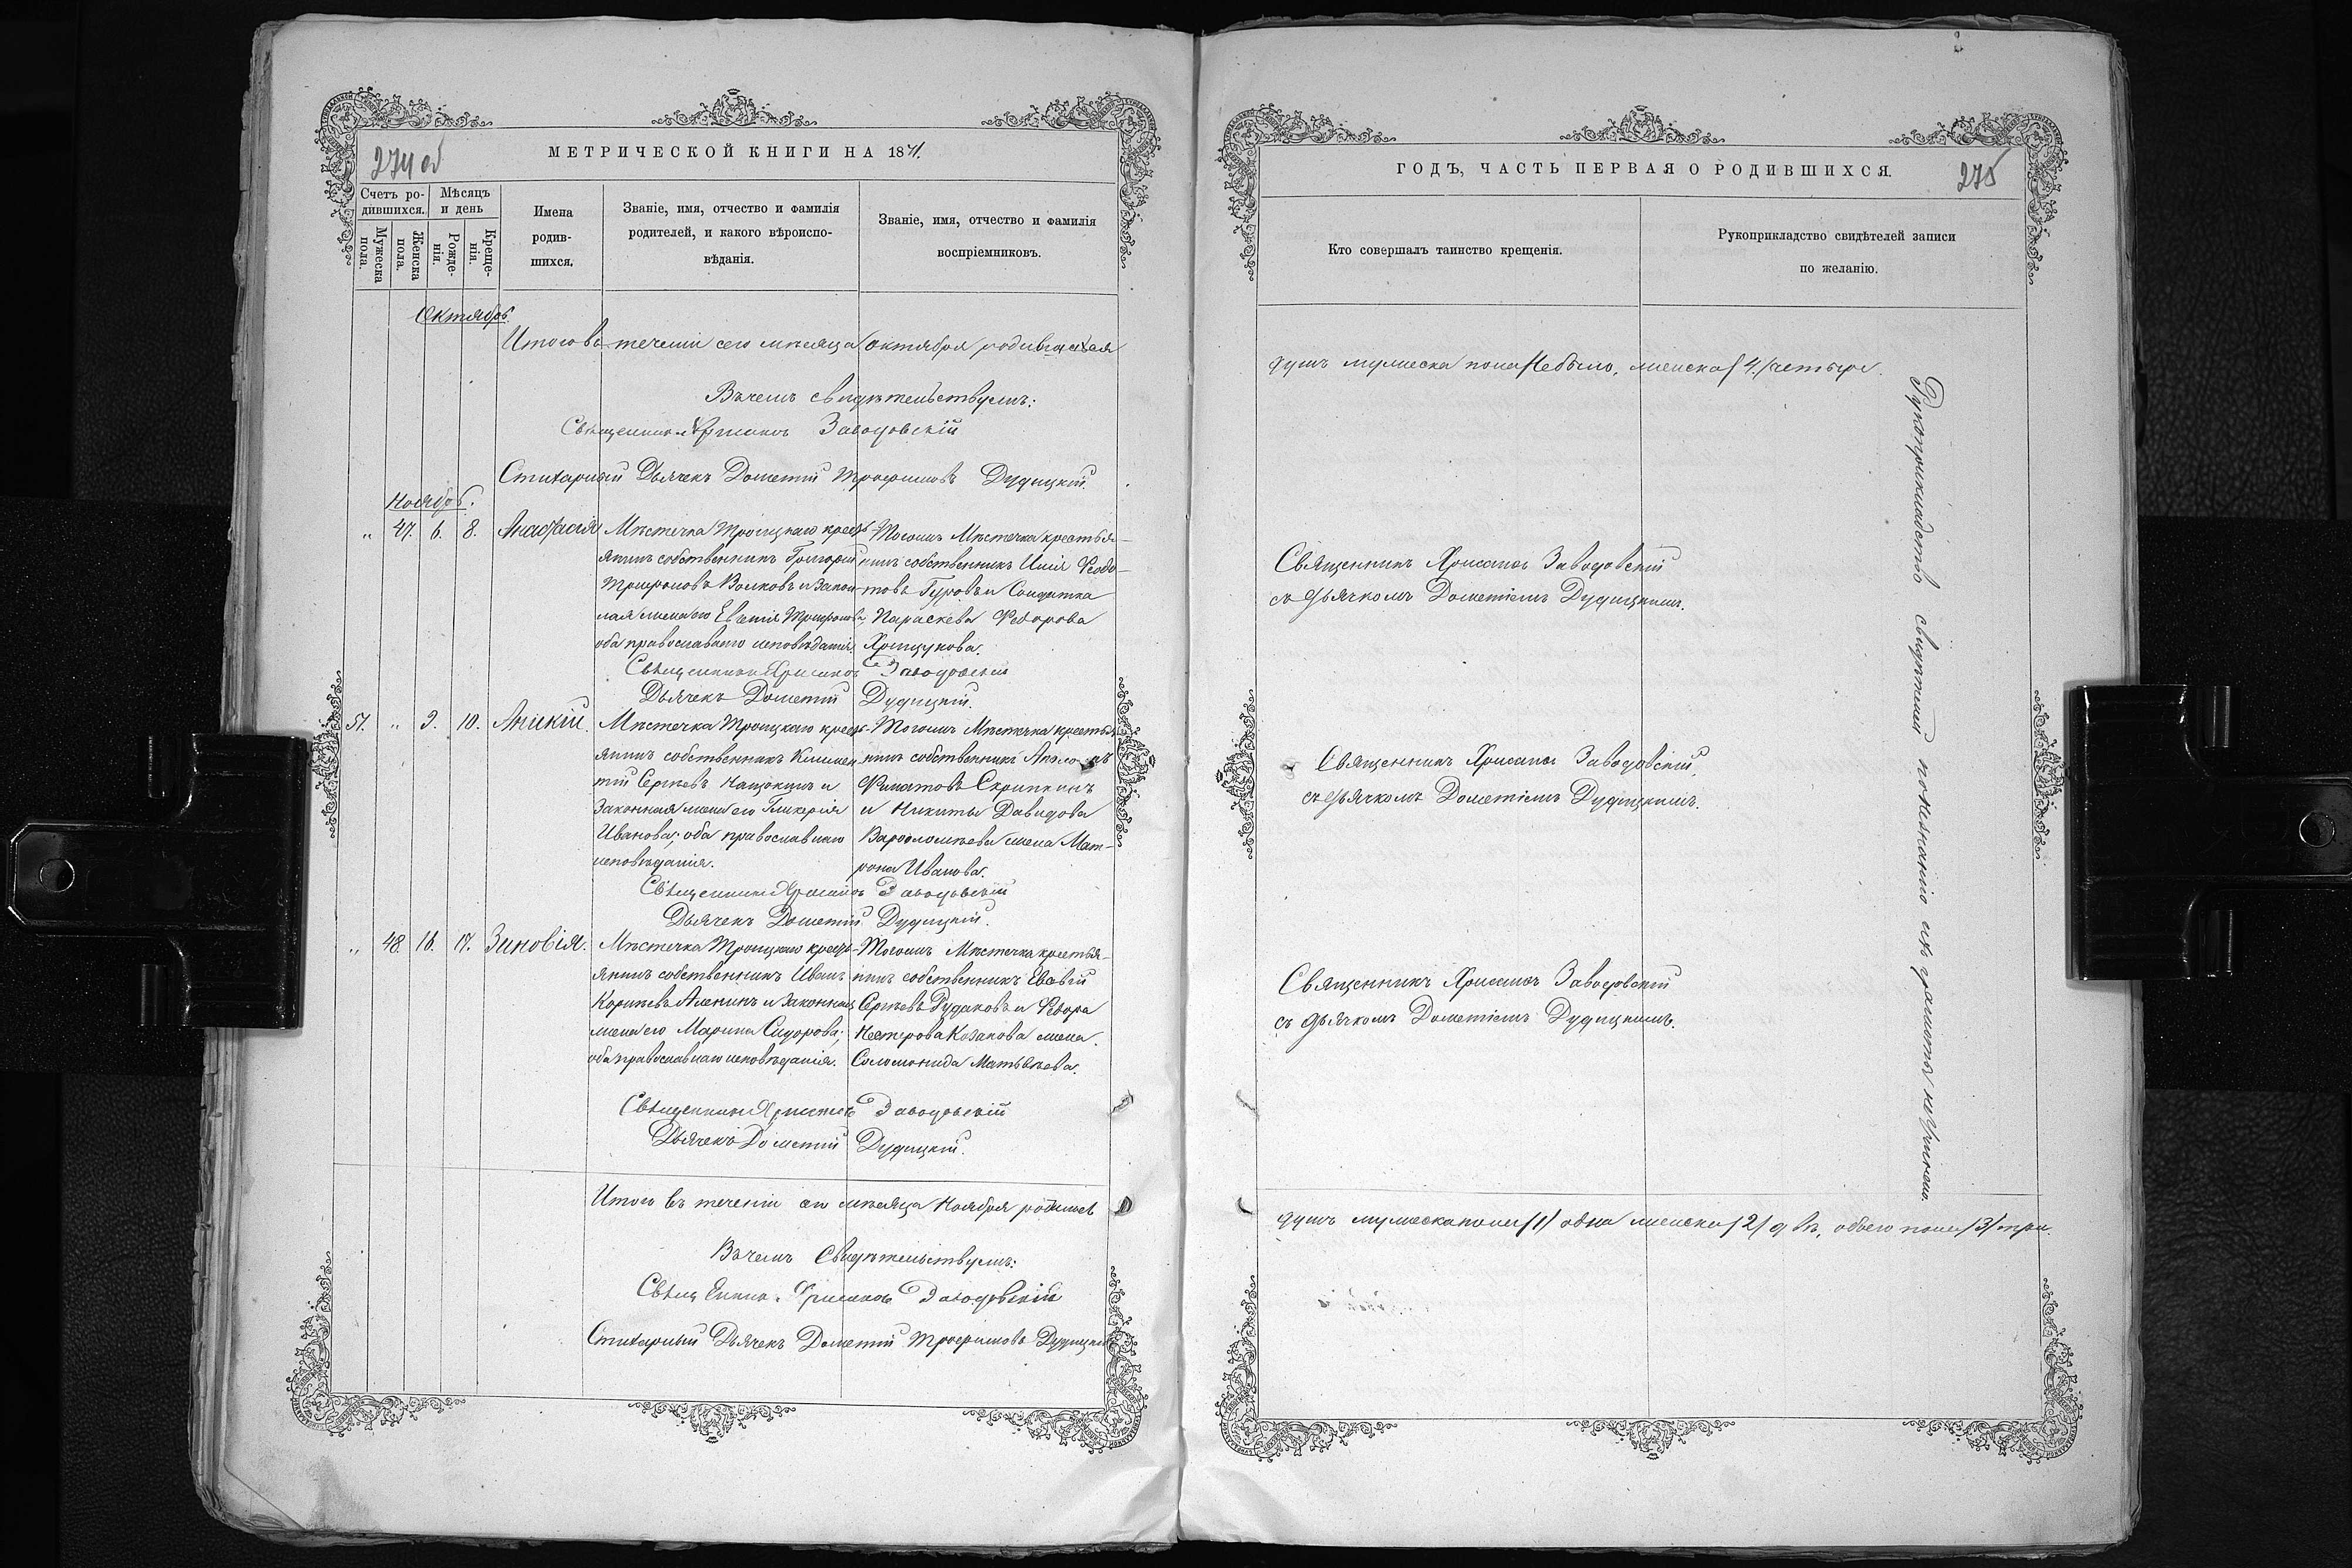 274 об
МЕТРИЧЕСКОЙ КНИГИ НА 1871.
Счетъ ро-
дившихся.
Мѣсяцъ
и день
Мужеска
пола.
Женска
пола.
Рожде-
нія.
Креще-
нія.
Имена
родив-
шихся.
Званіе, имя, отчество и фамилія
родителей, и какого вѣроиспо-
вѣданія.
Званіе, имя, отчество и фамилія
воспріемниковъ.
Октябрь
Итого въ теченіи сего мѣсяца октября родившихся
Въ чемъ свидѣтельствуемъ:
Священникъ Хрисанѳъ Заводовскій
Стихарный Дьячекъ Дометій Трофимовъ Дудицкій.
Ноябрь.
„ 47. 6. 8.
Мѣстечка Троицкаго кресть-
янинъ собственникъ Григорій
Трифоновъ Волковъ и закон-
ная жена его Евгенія Трифонова,
оба православнаго исповѣданія.
Тогожъ Мѣстечка крестья-
нинъ собственникъ Илія Ѳедо-
товъ Гуровъ и Солдатка
Параскева Ѳедорова
Хрищукова.
Священникъ Хрисанѳъ Заводовскій
Дьячекъ Дометій Дудицкій.
51. „ 9. 10. Аникій.
Мѣстечка Троицкаго кресть-
янинъ собственникъ Климен-
тій Сергѣевъ Нащокинъ и
законная жена его Гликерія
Иванова; оба православнаго
исповѣданія.
Тогожъ Мѣстечка крестья-
нинъ собственникъ
Филатовъ Скрипкинъ
и Никиты Давидова
Варѳоломѣева жена Мат-
рона Иванова.
Священникъ Хрисанѳъ Заводовскій
Дьячекъ Дометій Дудицкій.
„ 48. 16. 17. Зиновія.
Мѣстечка Троицкаго кресть-
янинъ собственникъ Иванъ
Корнѣевъ Аленинъ и законная
жена его Марина Сидорова;
оба православнаго исповѣданія.
Тогожъ Мѣстечка крестья-
нинъ собственникъ Евсевій
Сергѣевъ Рудаковъ и Ѳедора
Нестерова Козакова жена
Соломонида Матвѣева.
Священникъ Хрисанѳъ Заводовскій
Дьячекъ Дометій Дудицкій.
Итого въ теченіи сего мѣсяца Ноября родилось
Въ чемъ Свидѣтельствуемъ:
Священникъ Хрисанѳъ Заводовскій
Стихарный Дьячекъ Дометій Трофимовъ Дудицкій
ГОДЪ, ЧАСТЬ ПЕРВАЯ О РОДИВШИХСЯ.
275
Кто совершалъ таинство крещенія.
Рукоприкладство свидѣтелей записи
по желанію.
душъ мужеска пола небыло, женска /4./ четыре.
Священникъ Хрисанѳъ Заводовскій
съ дьячкомъ Дометіемъ Дудицкимъ.
Священникъ Хрисанѳъ Заводовскій,
съ дьячкомъ Дометіемъ Дудицкимъ.
Священникъ Хрисанѳъ Заводовскій
съ дьячкомъ Дометіемъ Дудицкимъ.
душъ мужеска пола /1/ одна женска /2/ двѣ, обоего пола /3/ три.
Рукоприкладство свидѣтелей по незнанію ихъ грамоты не учинено.